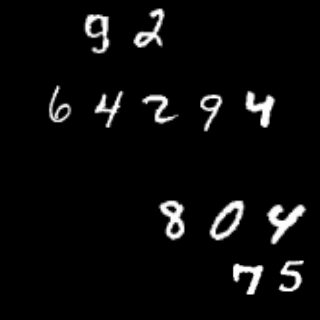 92
64294
804
75